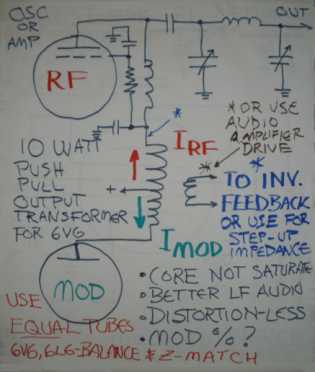 OSC
OR
AMP
OUT
RF
* OR USE
AUDIO
AMPLIFIER
DRIVE
*
IRF
*
10 WATT
PUSH
PULL
OUTPUT
TRANSFORMER
FOR 6V6
+
*
TO INV.
FEEDBACK
OR USE FOR
STEP-UP
IMPEDANCE
IMOD
MOD
• CORE NOT SATURATE
• BETTER LF AUDIO
• DISTORTION-LESS
• MOD % ?
USE
EQUAL TUBES
6V6, 6L6-BALANCE & Z-MATCH